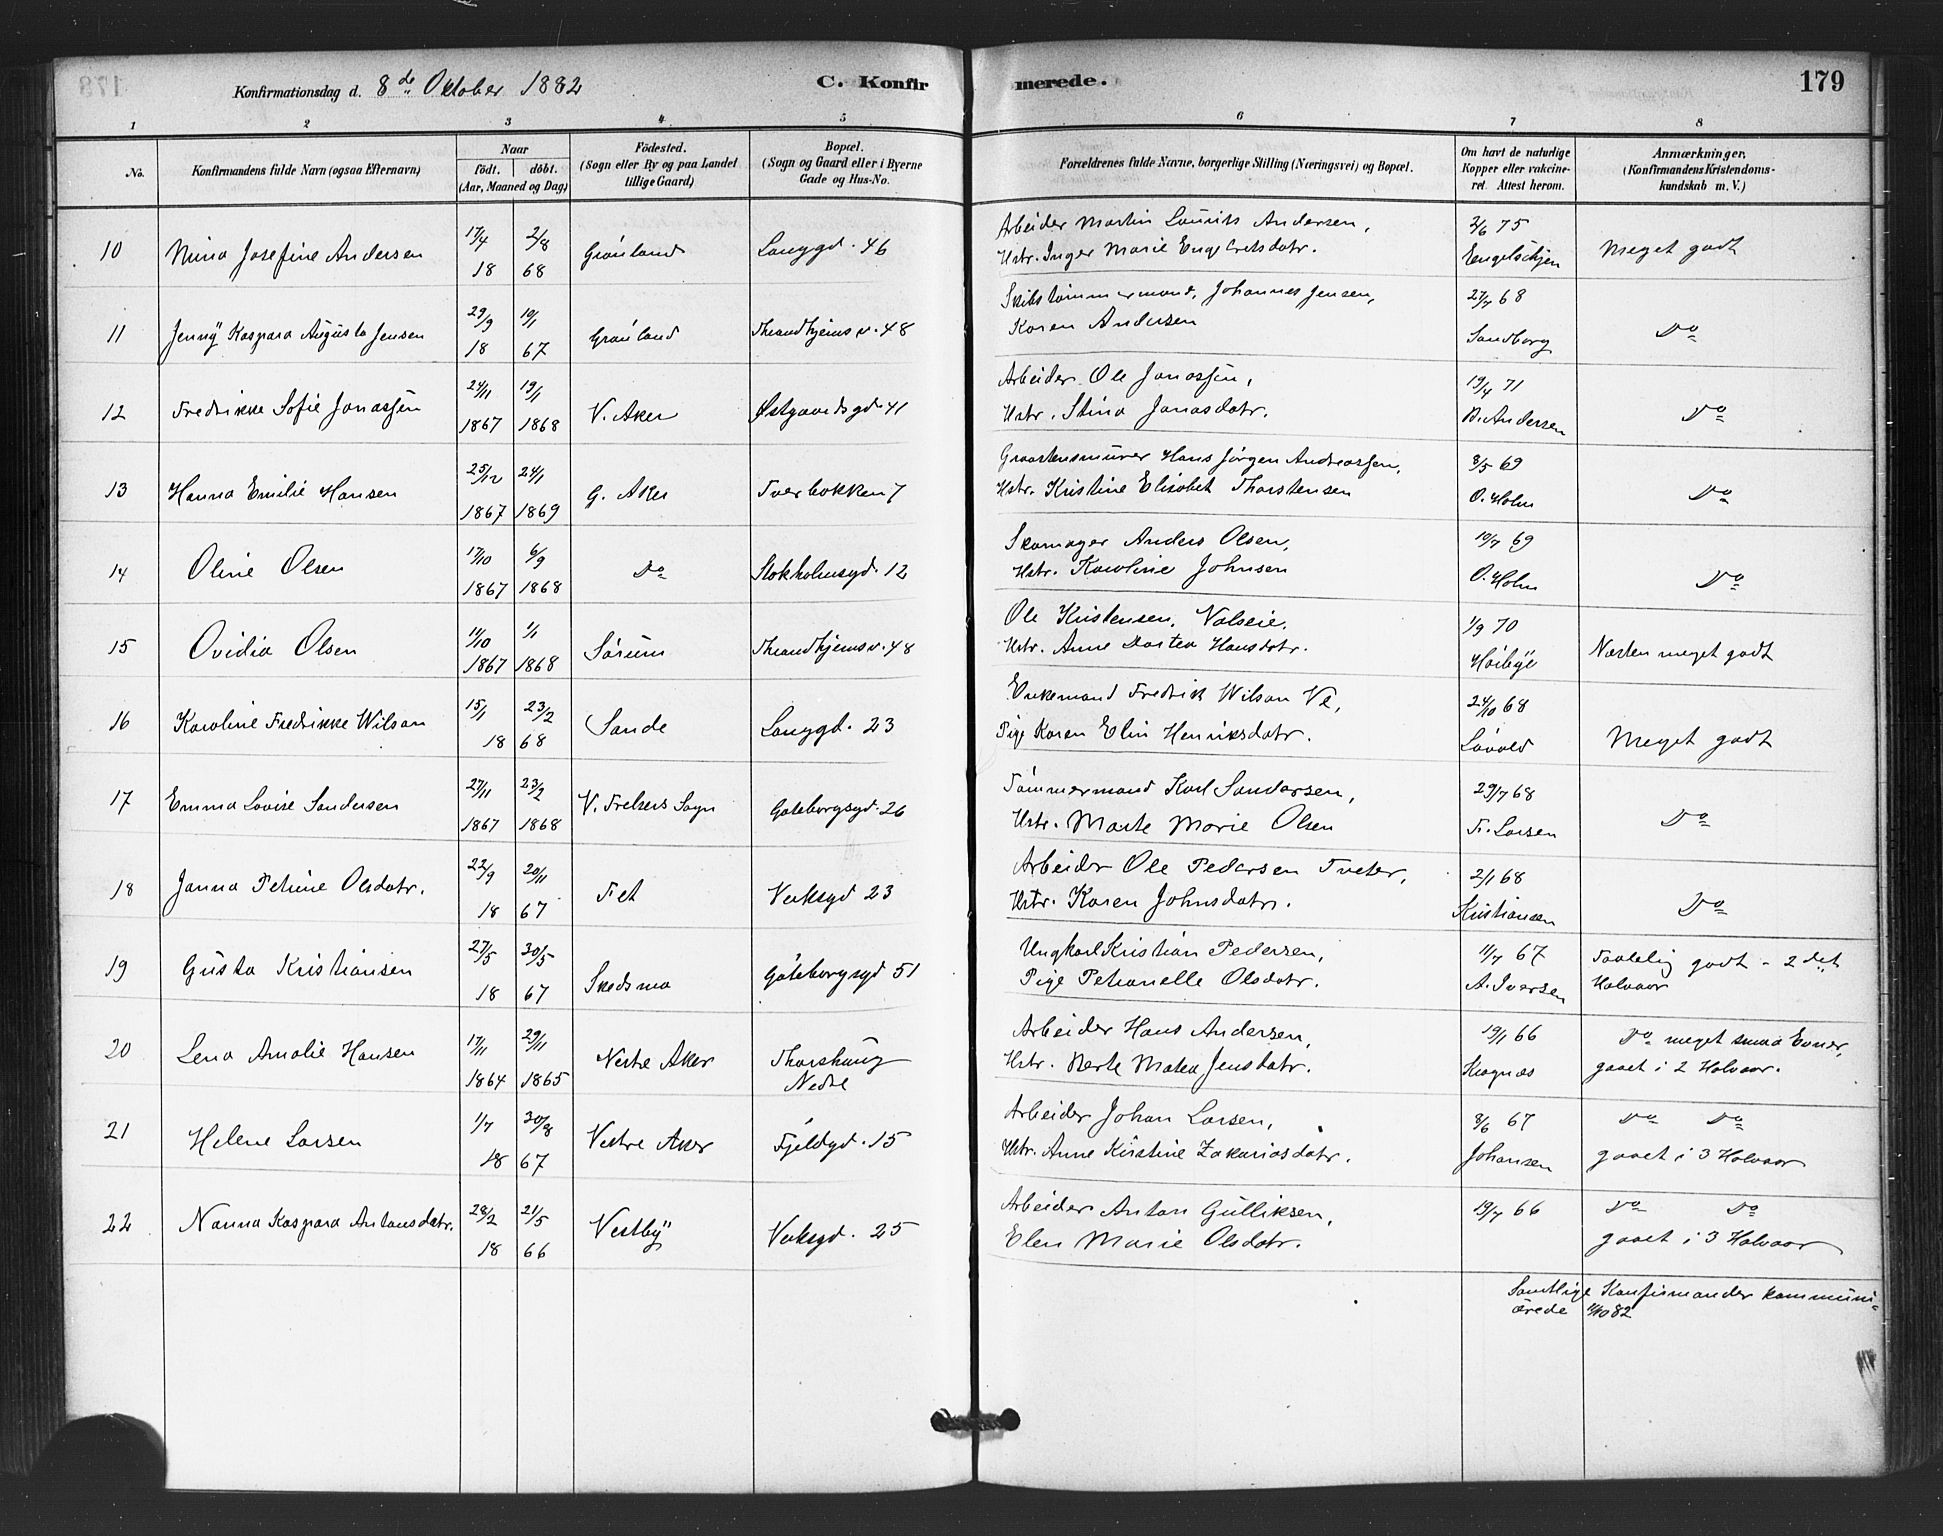 Konfirmationsdag d. 8de Oktober 1882 C. Konfirmerede. 179
1 2 3 4 5 6 7 8
No. Konfirmandens fulde Navn (ogsaa Efternavn) Naar født. døbt. (Aar, Maaned og Dag) Fødested. (Sogn eller By og paa Landet tillige Gaard) Bopæl. (Sogn og Gaard eller i Byerne Gade og Hus-No. Forældrenes fulde Navne, borgerlige Stilling (Næringsvei) og Bopæl. Om havt de naturlige Kopper eller vakcineret. Attest herom. Anmærkninger, (Konfirmandens Kristendomskundskab m. V.)
10 Nina Josefine Andersen 17/4 2/8 18 68 Grønland Langgd. 46 Arbeider Martin Laurits Andersen, Hstr. Inger Marie Engebretsdatr. 2/6 75 Engelschjen Meget godt
11 Jenny Kaspara Augusta Jensen 29/9 10/1 18 67 Grønland Throndhjems v. 48 Skibstømmermand, Johannes Jensen, Karen Andersen 27/7 68 Sandborg Do
12 Fredrikke Sofie Jonassen 24/11 19/1 1867 1868 V. Aker Østgaardsgd. 41 Arbeider Ole Jonassen, Hstr. Stina Jonasdatr. 19/4 71 B. Andersen Do
13 Hanna Emilie Hansen 25/12 24/1 1867 1869 G. Aker Tverbakken 7 Graastensmurer Hans Jørgen Andreassen, Hstr. Kristine Elisabet Thorstensen 8/5 69 O. Holm Do
14 Oline Olsen 17/10 6/9 1867 1868 Do Stokholmsgd. 12 Skomager Anders Olsen, Hstr. Karoline Johnsen 10/7 69 O. Holm Do
15 Ovidia Olsen 11/10 1/1 1867 1868 Sørum Throndhjemsv. 48 Ole Kristensen, Valseie, Hstr. Anne Dortea Hansdatr. 1/9 70 Høibye Næsten meget godt
16 Karoline Fredrikke Wilson 15/1 23/2 18 68 Sande Langgd. 23 Enkemand Fredrik Wilson Ve, Pige Karen Elin Henriksdatr. 24/10 68 Løvold Meget godt
17 Emma Lovise Sandersen 27/11 23/2 1867 1868 V. Frelsers Sogn Gøteborgsgd. 26 Tømmermand Karl Sandersen, Hstr. Marte Marie Olsen 29/7 68 Fr. Larsen Do
18 Janna Petrine Olsdatr. 22/9 20/11 18 67 Fet Verksgd 23 Arbeider Ole Pedersen Tveter, Hstr. Karen Johnsdatr. 2/1 68 Kristiansen Do
19 Gusta Kristiansen 27/5 30/5 18 67 Skedsmo Gøteborgsgd 51 Ungkarl Kristian Pedersen, Pige Petronelle Olsdatr. 11/7 67 A. Iversen Taalelig godt - 2det Halvaar
20 Lena Amalie Hansen 17/11 29/11 1864 1865 Vestre Aker Thorshaug Nedre Arbeider Hans Andersen, Hstr. Berte Matea Jensdatr. 19/1 66 Kragnæs Do meget smaa Evner, gaaet i 2 Halvaar.
21 Helene Larsen 1/7 30/8 18 67 Vestre Aker Fjeldgd. 15 Arbeider Johan Larsen, Hstr. Anne Kirstine Zakariasdatr. 8/6 67 Johansen Do Do gaaet i 3 Halvaar
22 Nanna Kaspara Antonsdatr. 28/2 21/5 18 66 Vestby Verksgd. 25 Arbeider Anton Gulliksen, Elen Marie Olsdatr. 19/7 66 Do Do gaaet i 3 Halvaar
Samtlige Konfirmander kommuni-
cerede 11/10 82